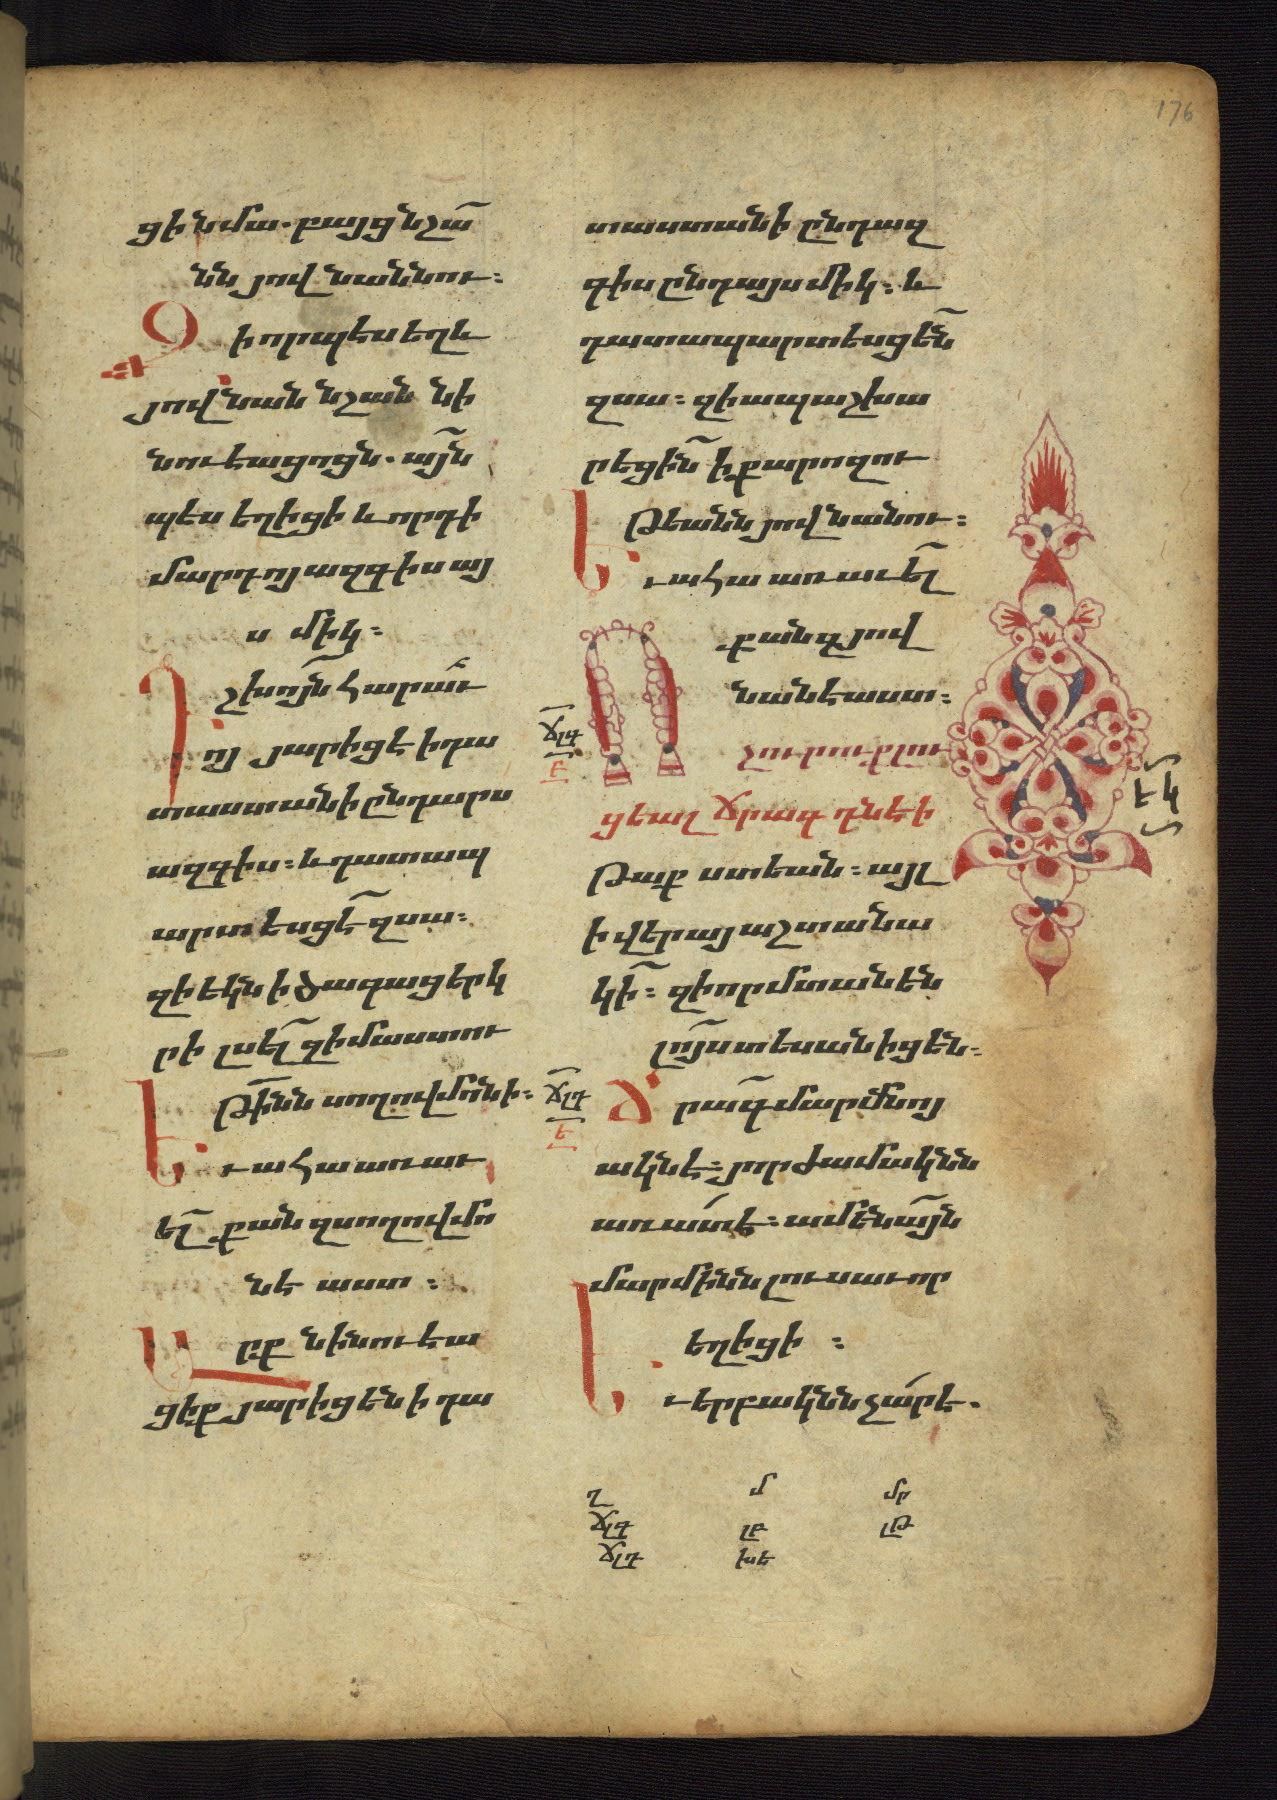 176
ցի նմա. բայց նշա
նն յովնաննու։
Զ
ի որպէս եղև
յովնան նշան նի
նուեացոցն. այն
պէս եղիցի և որդի
մարդոյ ազգիս այ
ս միկ։
Դ
շխոյն հարաւ
ոյ յարիցէ ի դա
տաստանի ընդ արս
ազգիս։ և դատապ
արտեսցէ զսա։
զի եկն ի ծագաց երկ
րի լսել զիմաստու
Ե
թինն սողովմոնի։
ւ ահա առաւ
ել քան զսողովմո
նէ աստ։
Ա
րք նինուեա
ցիք յարիցեն ի դա
տաստանի ընդ ազ
գիս ընդ այսմիկ։ և
դատապարտեսցեն
զսա։ զի ապաշխա
րեցին ի քարոզու
Ե
թեանն յովնանու։
ւ ահա առաւել
քան զյով
նանէ աստ։
ՃԼԳ
Բ
Ո
չ ուրուք լու
ցեալ ճրագ դնէ ի
թաքստեան։ այլ
ի վերայ աշտանա
կի։ զի որ մտանեն
լոյս տեսանիցեն։
ՃԼԴ
Ե
Ճ
րագ մարմնոյ
ակն է։ յորժամ ակնն
առատ է։ ամենայն
մարմինն լուսաւոր
Ե
եղիցի։
ւ երբ ակնն չար է.
ԷԿ
Ղ Մ ՄՐ
ՃԼԳ ԼԲ ԼԹ
ՃԼԴ ԽԵ